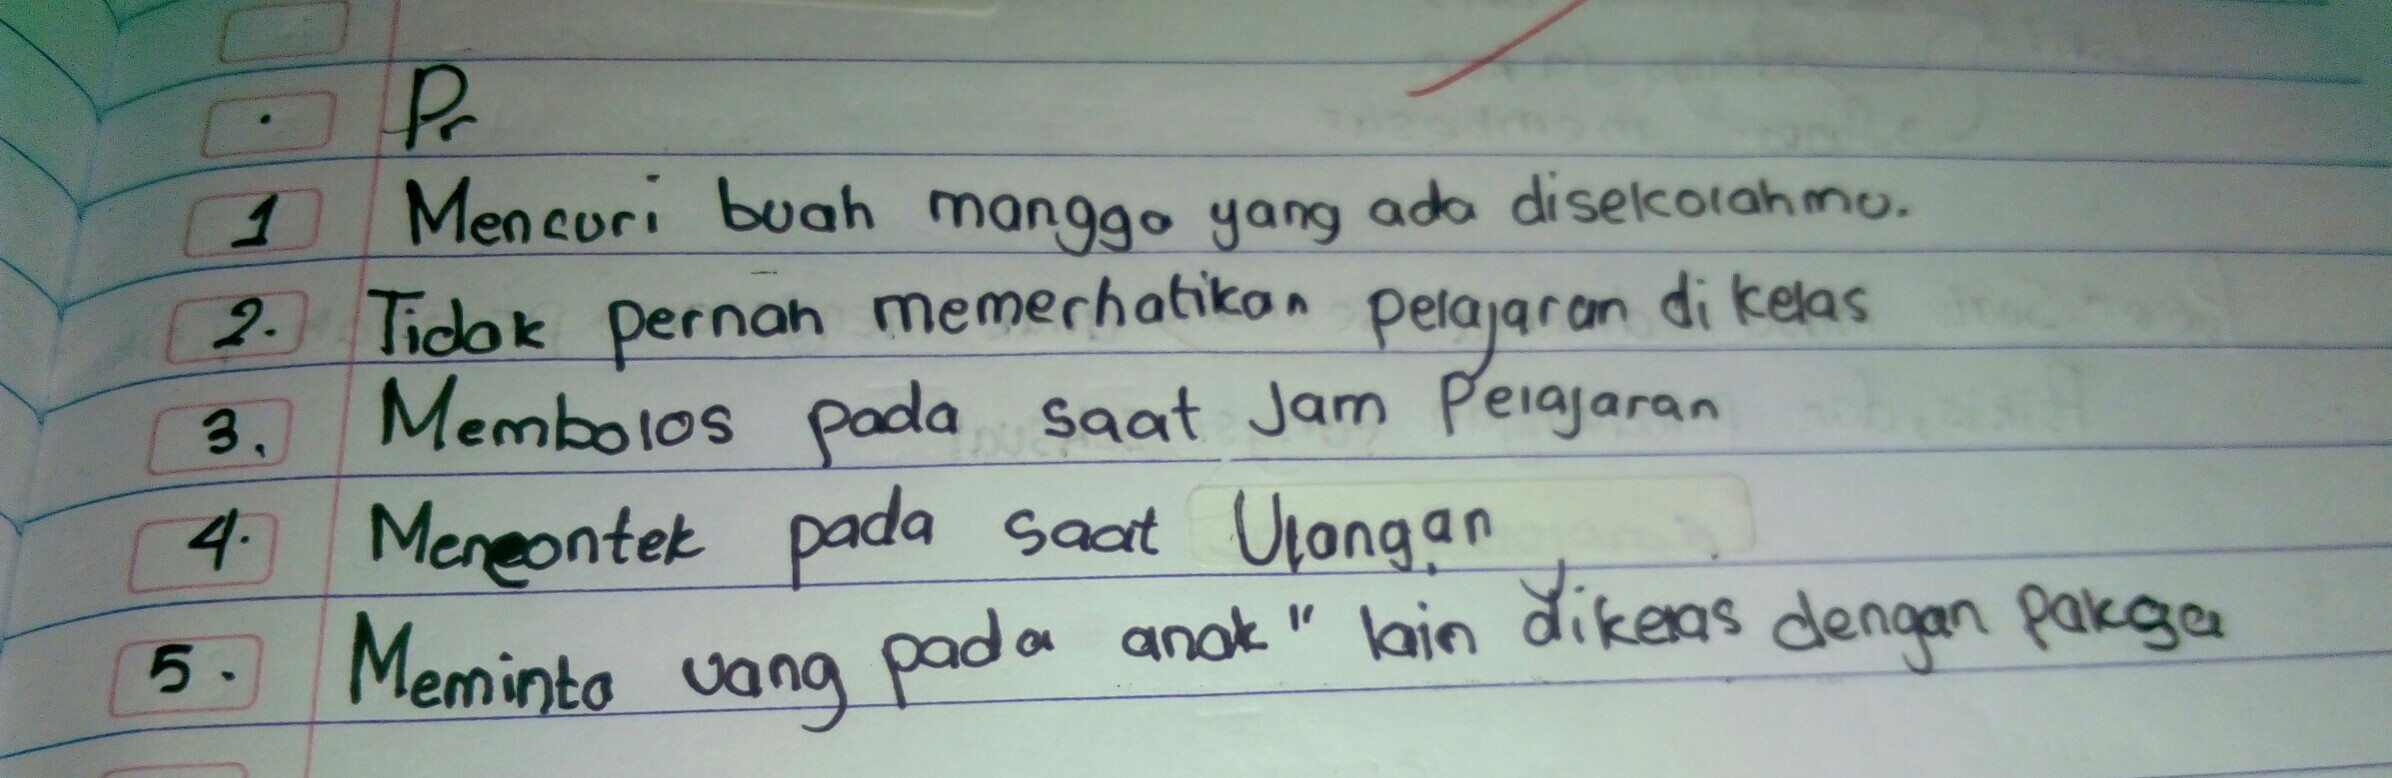 Pr
1 Mencuri buah mangga yang ada disekolahmu.
2. Tidak pernah memerhatikan pelajaran di kelas
3. Membolos pada saat Jam Pelajaran
4. Mencontek pada saat Ulangan
5. Meminta uang pada anak" lain dikelas dengan paksa